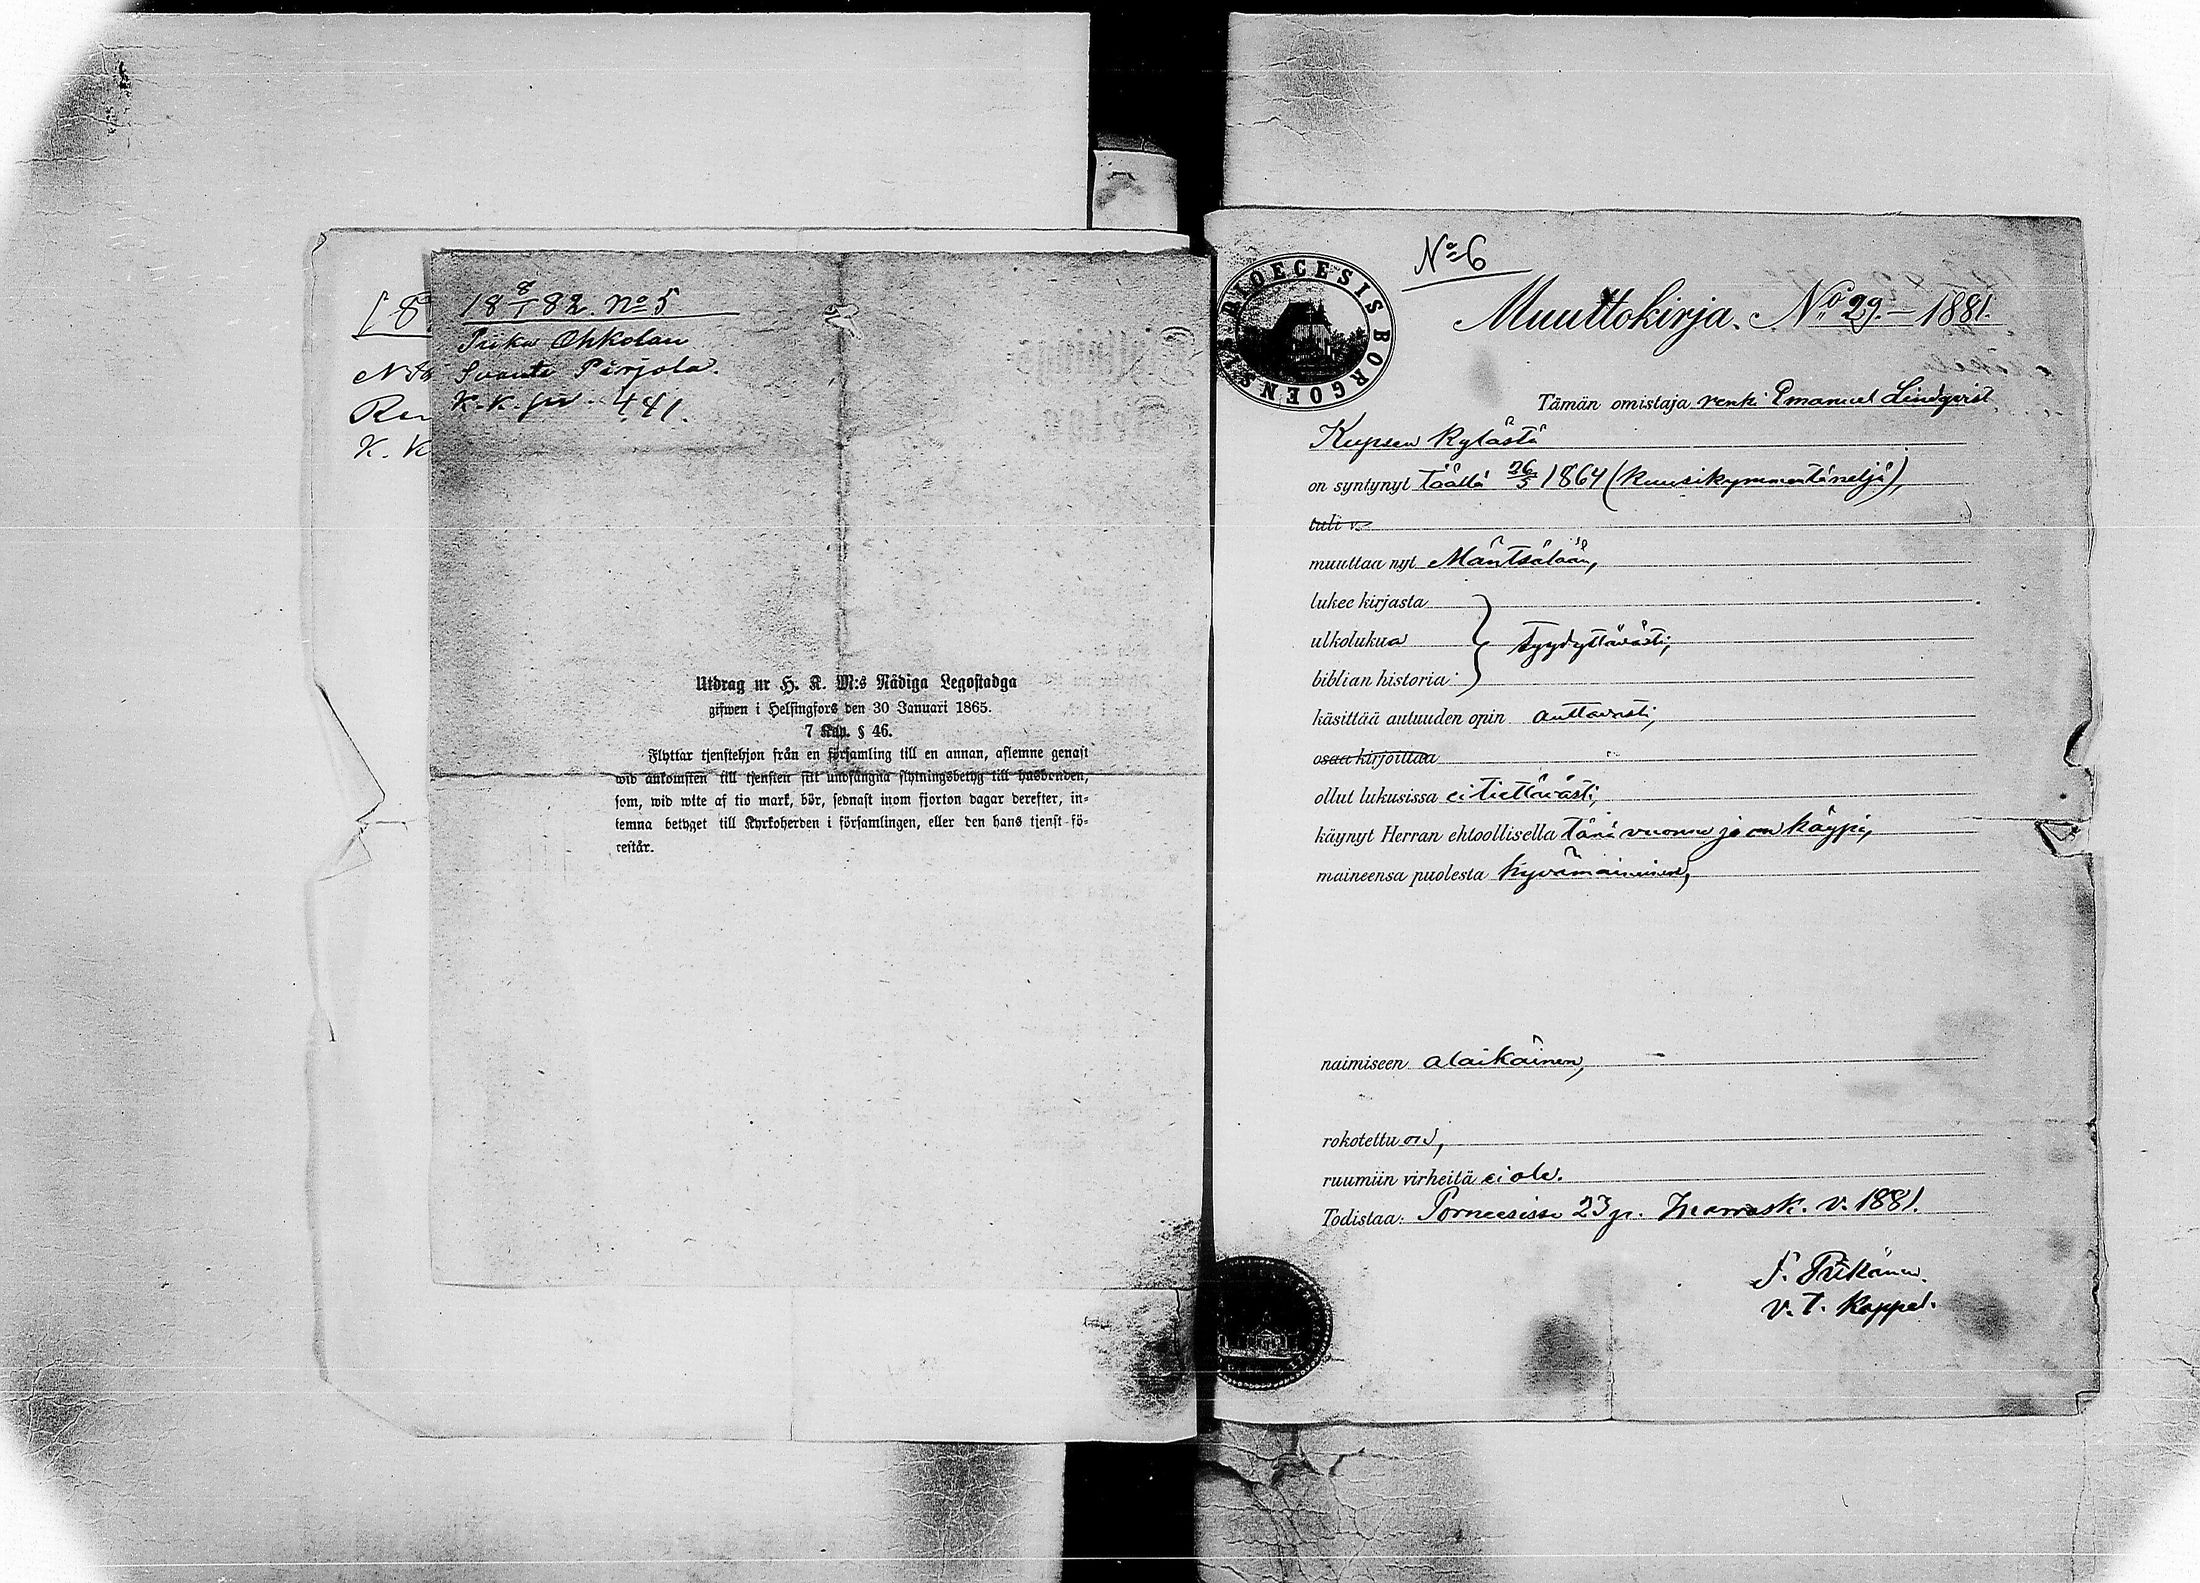 18 8/1 82. No 5
Piika Ohkolan
Svante Pirjola.
K.K. siv. 441.
Utdrag ur H. K. M:s Nådiga Legostadga
gifwen i Helsingfors den 30 Januari 1865.
7 Kap. § 46.
Flyttar tjenstehjon från en församling till en annan, aflemne genast
wid ankomsten till tjensten sitt undfångna flytningsbetyg till husbonden,
som, wid wite af tio mark, bör, sednast inom fjorton dagar derefter, in-
lemna betyget till Kyrkoherden i församlingen, eller den hans tjenst fö-
restår.
No 6
DIOECESIS BORGOENSIS
Muuttokirja. No 29. – 1881.
Tämän omistaja renki Emanuel Lindqvist
Kupsen kylästä
on syntynyt täällä 26/5 1864 (kuusikymmentäneljä),
tuli v.
muuttaa nyt Mäntsälään,
lukee kirjasta
ulkolukua } tyydyttävästi,
biblian historia
käsittää autuuden opin auttavasti,
osaa kirjoittaa
ollut lukusissa ei tiettävästi,
käynyt Herran ehtoollisella tänä vuonna ja on käypä,
maineensa puolesta hyvämaineinen,
naimiseen alaikäinen,
rokotettu on,
ruumiin virheitä ei ole.
Todistaa: Porneesissa 23 p. Marrask. v. 1881.
v. t. Kappel.